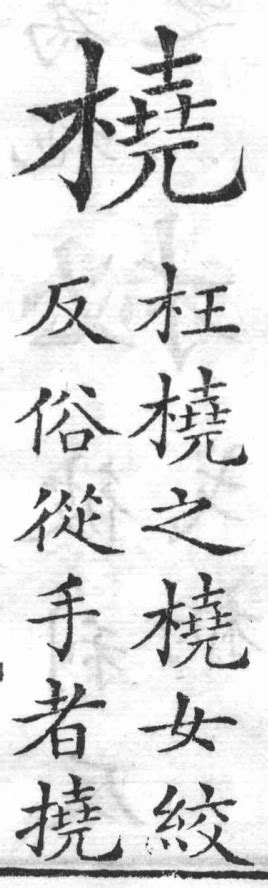 橈
枉橈之橈女絞
反俗從手者撓